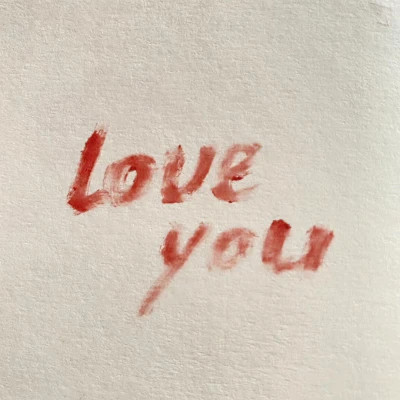 Love
you